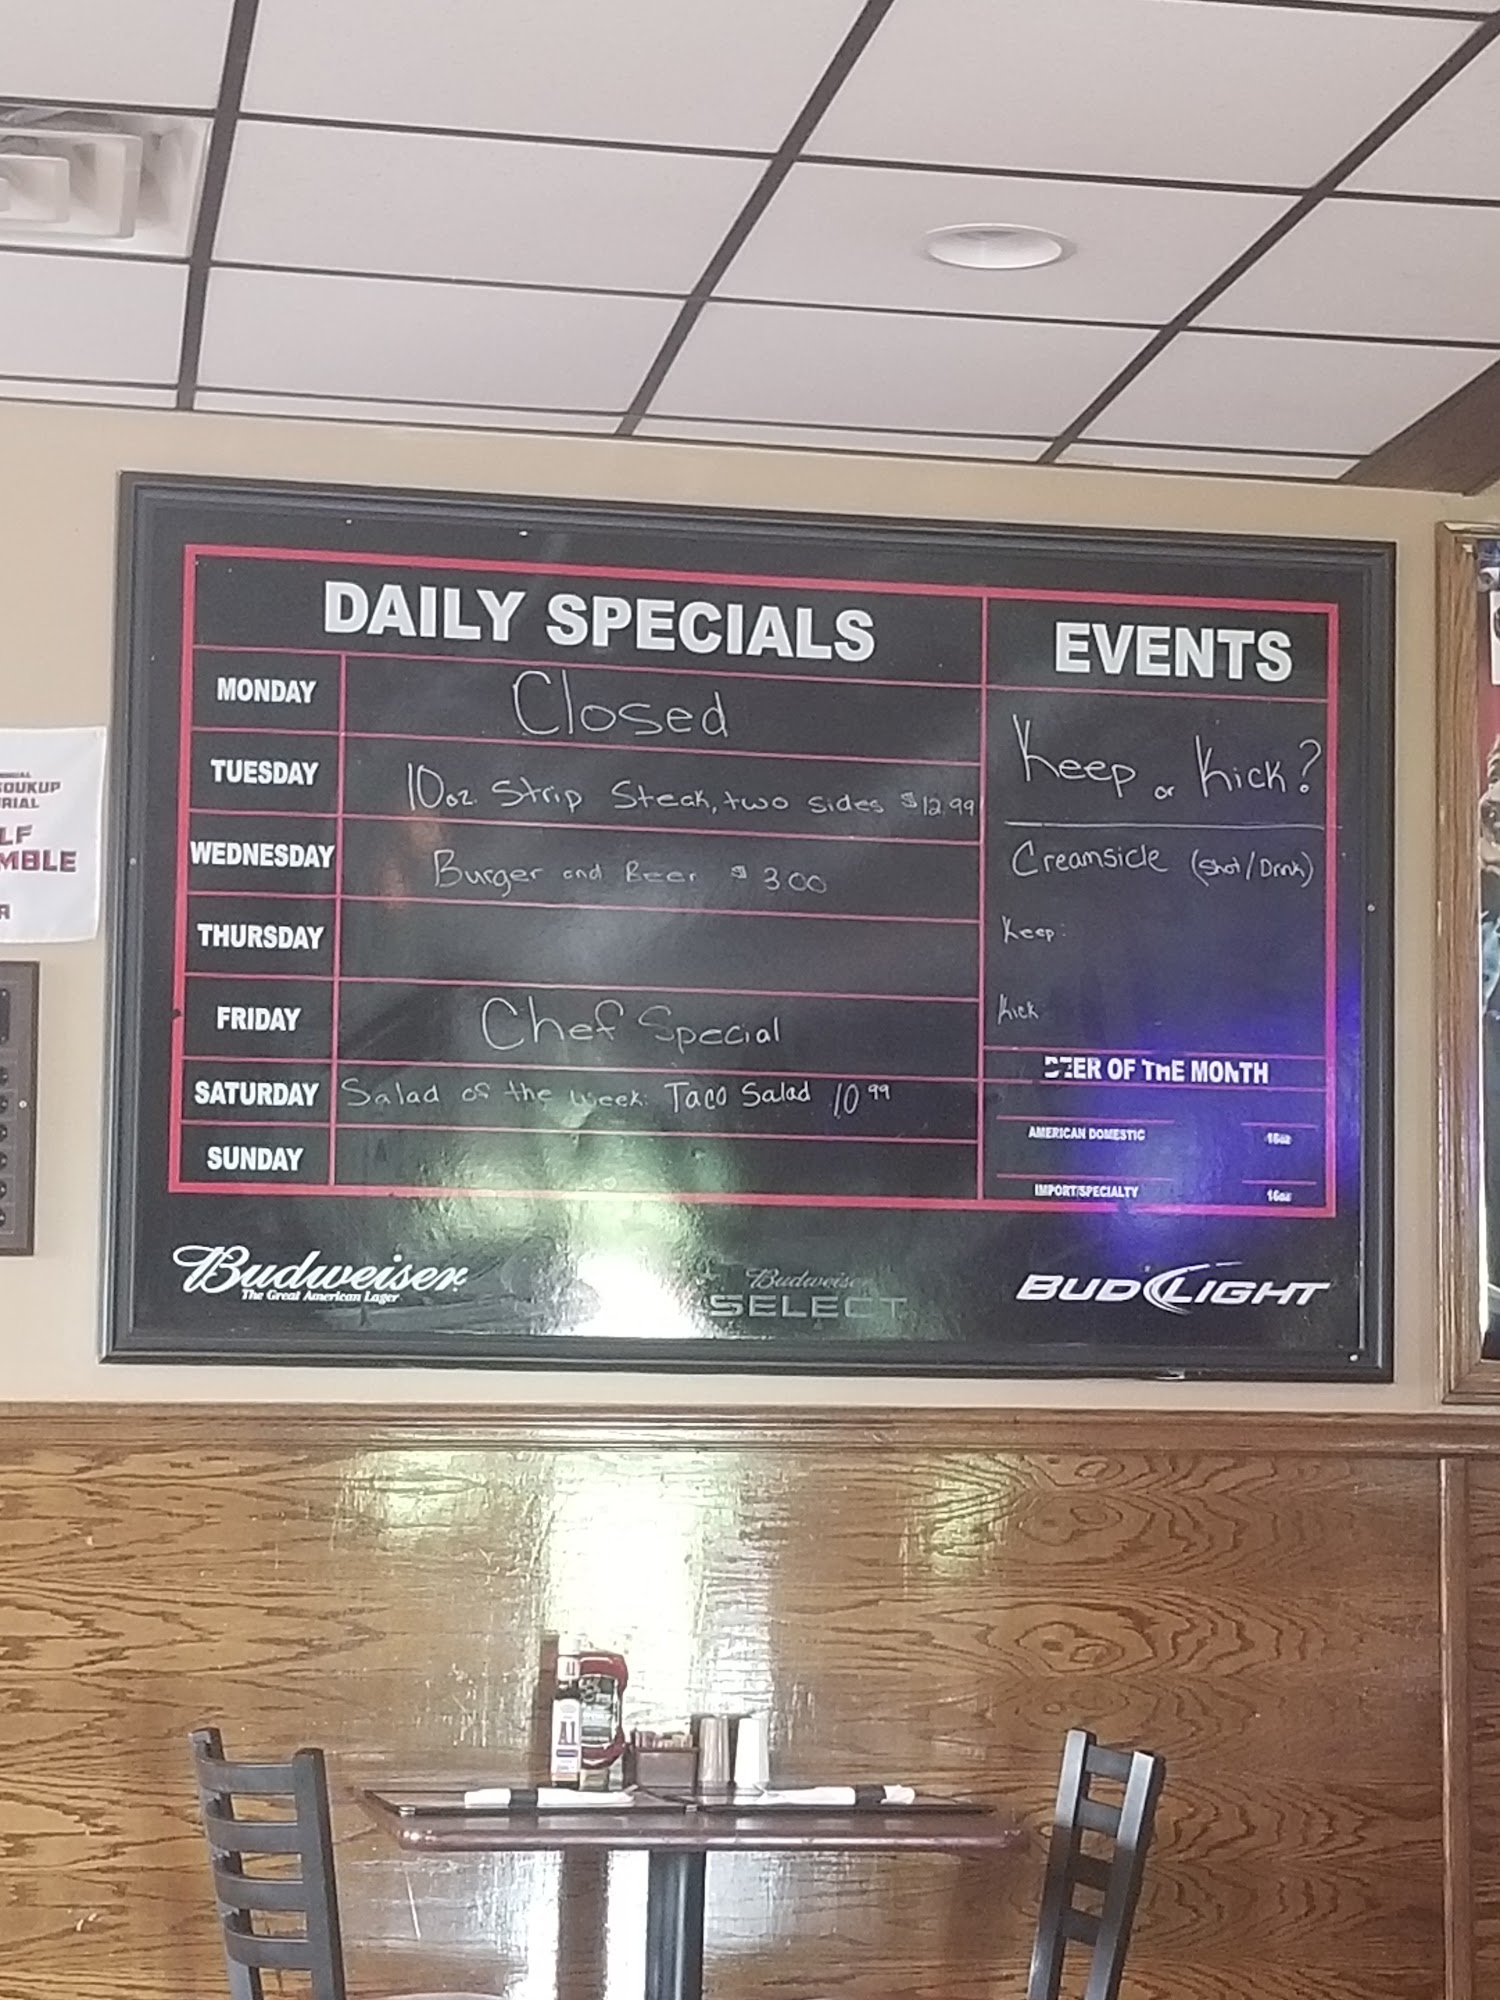 DAILY SPECIALS
MONDAY Closed
TUESDAY 10oz. Strip Steak, two sides $12.99
WEDNESDAY Burger and Beer $3.00
THURSDAY
FRIDAY Chef Special
SATURDAY Salad of the week: Taco Salad 10 99
SUNDAY
EVENTS
Keep or Kick?
Creamsicle (Shot/Drink)
Keep:
Kick
BEER OF THE MONTH
AMERICAN DOMESTIC 16oz
IMPORT/SPECIALTY 16oz
Budweiser
The Great American Lager
Budweiser
SELECT
BUD LIGHT
OUKUP
RIAL
LF
MBLE
A1